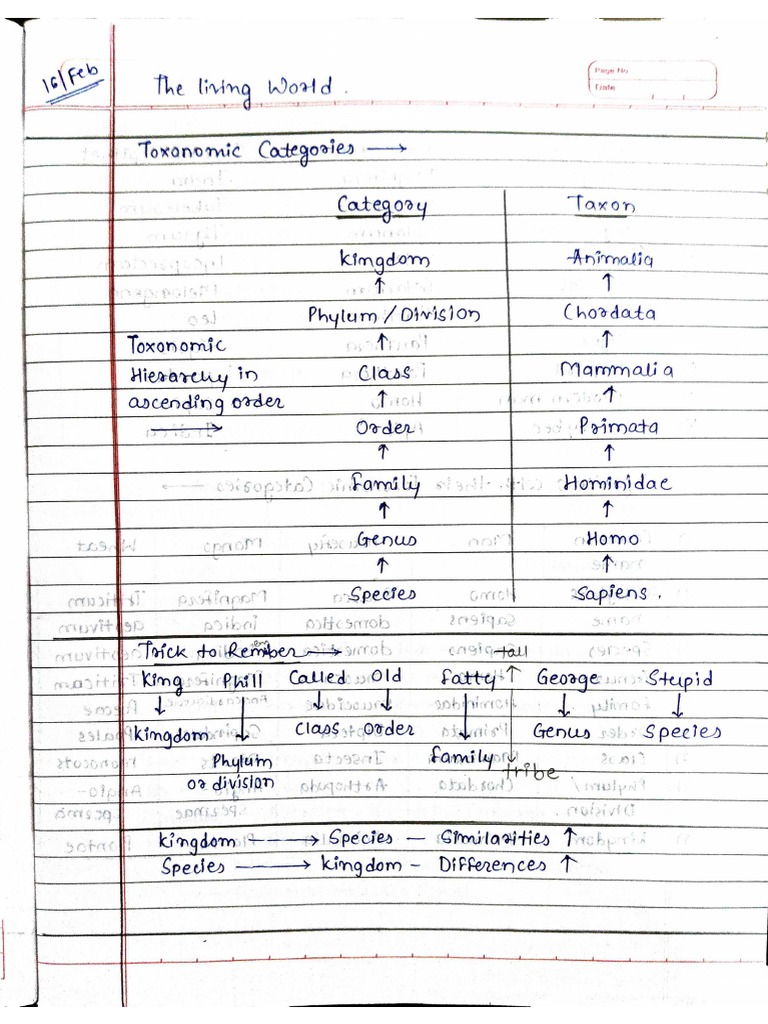 16/Feb
The living World.
Page No
Date
Toxonomic Categories →
Category Taxon
Kingdom Animalia
↑ ↑
Phylum / Division Chordata
Toxonomic ↑ ↑
Hierarchy in Class Mammalia
ascending order ↑ ↑
→ Order Primata
↑ ↑
Family Hominidae
↑ ↑
Genus Homo
↑ ↑
Species Sapiens.
Trick to Remember → tall
King Phill Called Old Fatty ↑ George Stupid
↓ ↓ ↓ ↓ ↓ ↓ ↓
Kingdom Class Order Genus Species
Phylum Family ↓
or division tribe.
Kingdom ----→ Species - Similarities ↑
Species → Kingdom - Differences ↑